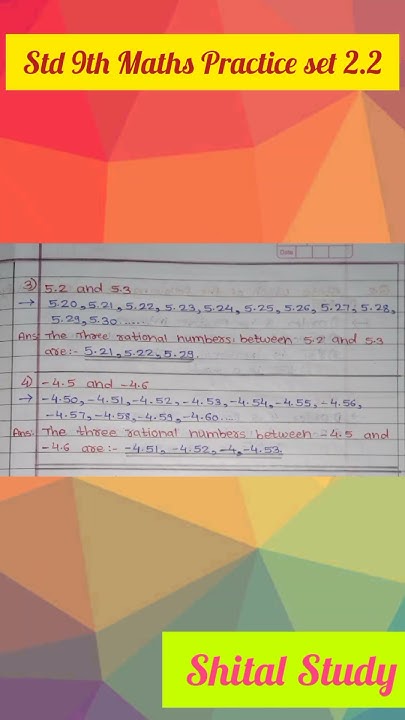 Std 9th Maths Practice set 2.2
Date
3) 5.2 and 5.3
→ 5.20, 5.21, 5.22, 5.23, 5.24, 5.25, 5.26, 5.27, 5.28,
5.29, 5.30......
Ans: The three rational numbers between 5.2 and 5.3
are:- 5.21, 5.22, 5.29.
4) -4.5 and -4.6
→ -4.50, -4.51, -4.52, -4.53, -4.54, -4.55, -4.56,
-4.57, -4.58, -4.59, -4.60...
Ans: The three rational numbers between -4.5 and
-4.6 are:- -4.51, -4.52, -4, -4.53.
Shital Study